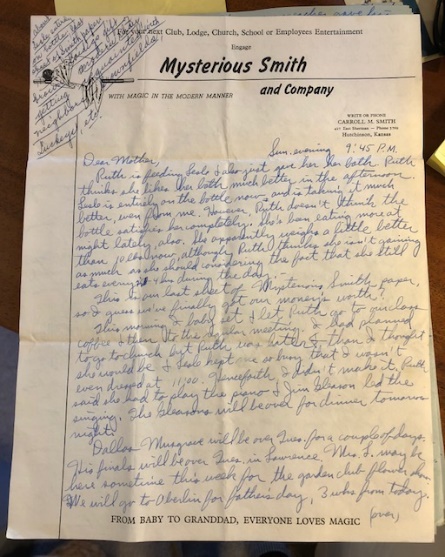 For your next Club, Lodge, Church, School or Employees Entertainment
Engage
Mysterious Smith
and Company
WITH MAGIC IN THE MODERN MANNER
WRITE OR PHONE
CARROLL M. SMITH
Hutchinson, Kansas
Sun. evening 9:45 P.M.
Dear Mother,
Ruth is feeding Lesle & also just gave her her bath. Ruth
thinks she likes her bath much better in the afternoon.
Lesle is entirely on the bottle now and is taking it much
better, even from me. However, Ruth doesn't think the
bottle satisfies her completely. She's been eating more at
night lately, also. She apparently weighs a little better
than 10 lbs now, although Ruth thinks she isn't gaining
as much as she should considering the fact that she still
eats every 4 hrs during the day.
This is our last sheet of Mysterious Smith paper,
so I guess we've finally got our money's worth!
This morning I baby sat & let Ruth go to our class
coffee & then to the regular meeting. I had planned
to go to church but Ruth was later than I thought
she would be & Lesle kept me so busy that I wasn't
even dressed at 11:00. Henceforth, I didn't make it. Ruth
said she had to play the piano & Jim Gleason led the
singing. The Gleasons will be over for dinner tomorrow
night.
Dallas Musgrave will be over Tues. for a couple of days.
His finals will be over Tues. in Lawrence. Mrs. I. may be
here sometime this week for the garden club flower show.
We will go to Oberlin for father's day, 3 wks from today.
(over)
FROM BABY TO GRANDDAD, EVERYONE LOVES MAGIC